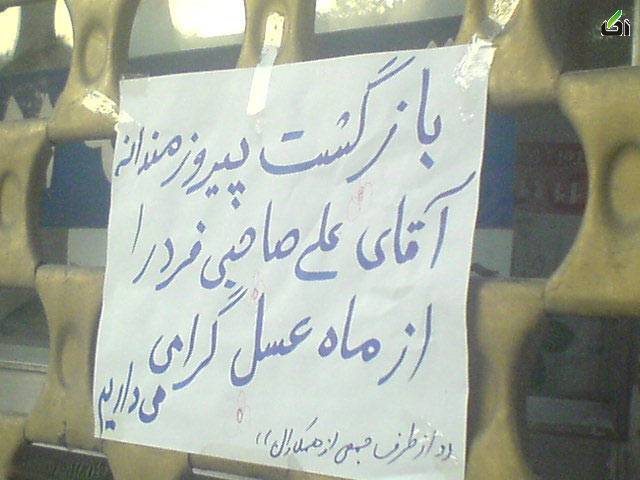 بازگشت پیروزمندانه
آقای علی صاحبی فرد را
از ماه عسل گرامی
می داریم
"از طرف جمعی از همکاران"